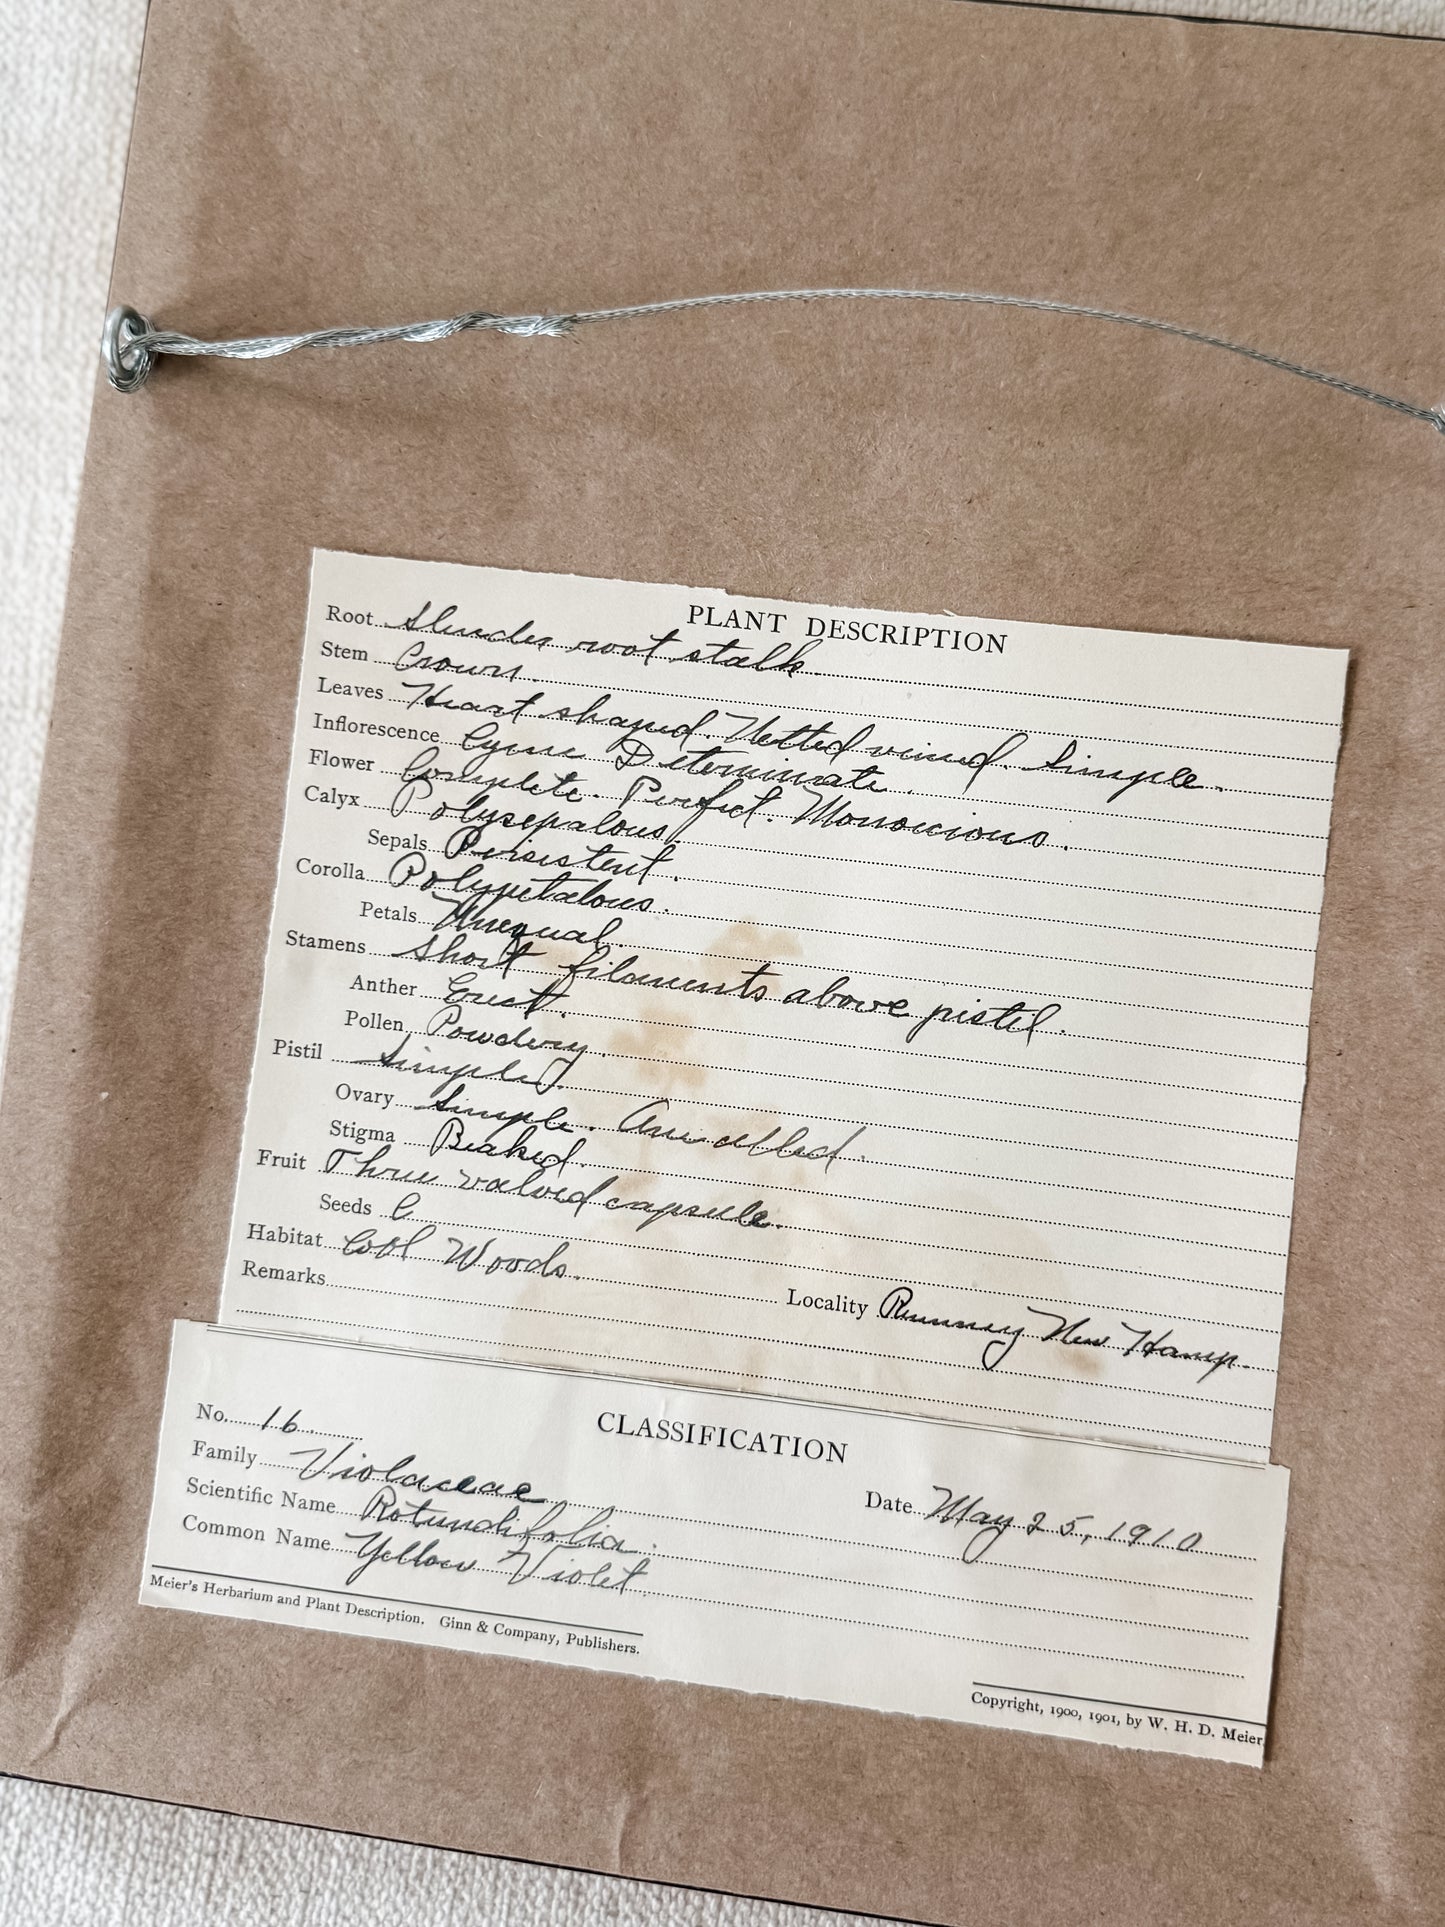 PLANT DESCRIPTION
Root Slender root stalk.
Stem Crown.
Leaves Heart shaped. Netted veined. Simple.
Inflorescence Cyme Determinate.
Flower Complete. Perfect. Monoecious.
Calyx Polysepalous.
Sepals Persistent.
Corolla Polypetalous.
Petals Unequal.
Stamens Short filaments above pistil.
Anther Erect.
Pollen Powdery.
Pistil Simple.
Ovary Simple. One celled.
Stigma Beaked.
Fruit Three valved capsule.
Seeds
Habitat Cool Woods. Locality Rumney New Hamp.
Remarks
CLASSIFICATION
No. 16. Date May 25, 1910
Family Violaceae
Scientific Name Rotundifolia.
Common Name Yellow Violet.
Meier's Herbarium and Plant Description. Ginn & Company, Publishers.
Copyright, 1900, 1901, by W. H. D. Meier